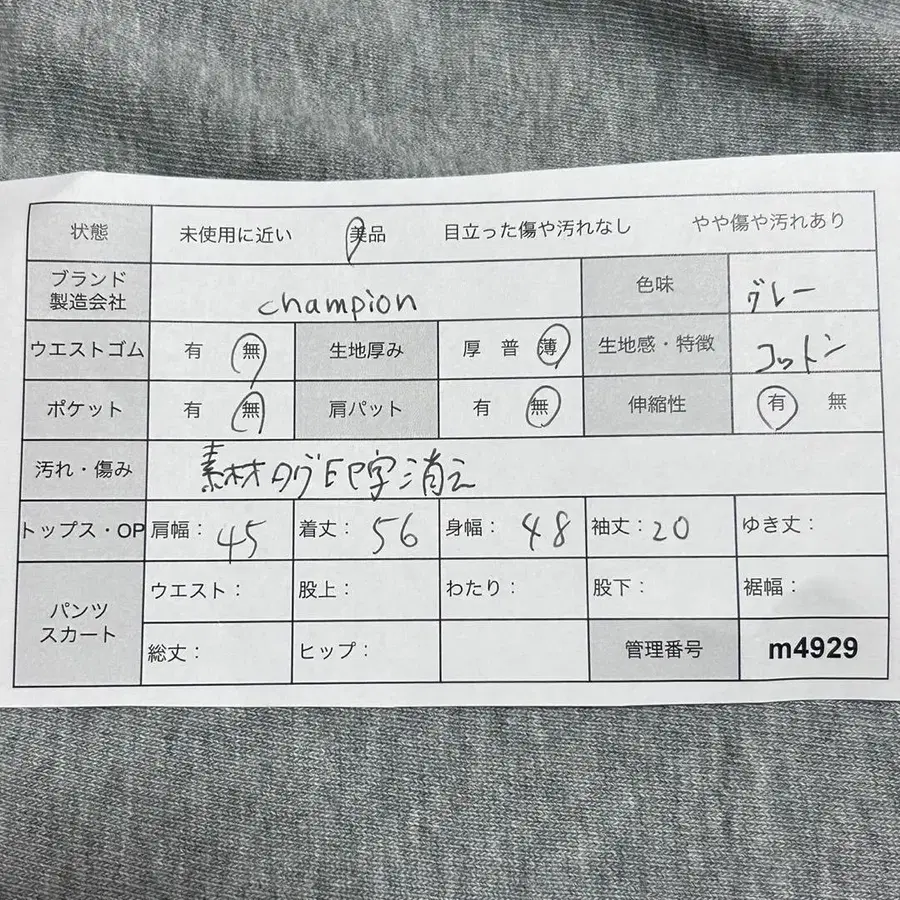 状態 未使用に近い 美品 目立った傷や汚れなし やや傷や汚れあり
ブランド
製造会社 champion 色味 グレー
ウエストゴム 有 無 生地厚み 厚 普 薄 生地感・特徴 コットン
ポケット 有 無 肩パット 有 無 伸縮性 有 無
汚れ・傷み 素材タグ印字消え
トップス・OP 肩幅：45 着丈：56 身幅：48 袖丈：20 ゆき丈：
パンツ
スカート ウエスト： 股上： わたり： 股下： 裾幅：
総丈： ヒップ： 管理番号 m4929